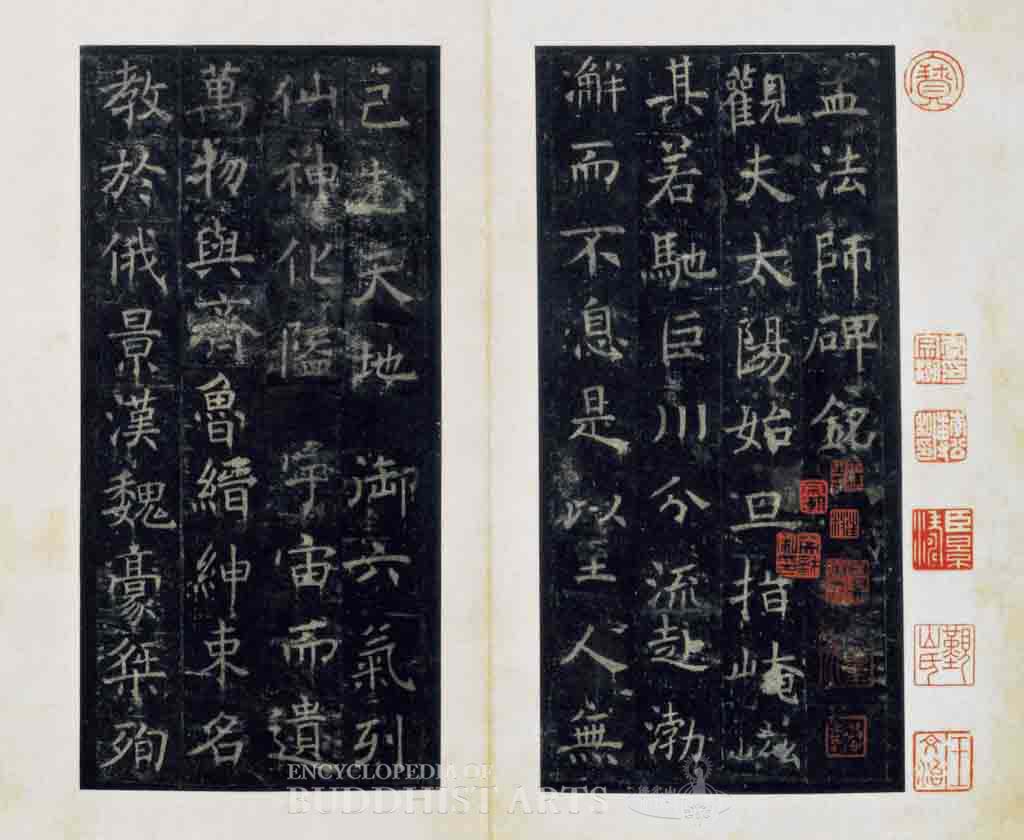 孟法師碑銘
觀夫太陽始旦指崦嵫
其若馳巨川分流赴渤
澥而不息是以至人無
己先天地御六氣列
仙神化隘宇宙而遺
萬物與齊魯縉紳束名
教於俄景漢魏豪桀殉
臣景脩
王文治
ENCYCLOPEDIA OF
BUDDHIST ARTS